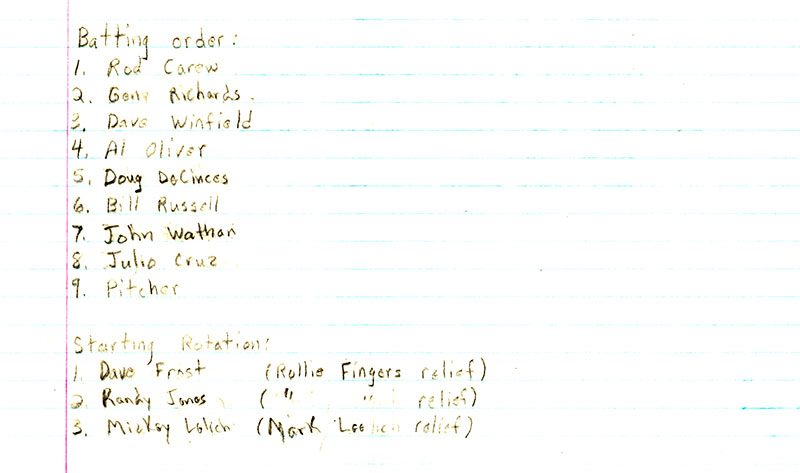 Batting order:
1. Rod Carew
2. Gene Richards.
3. Dave Winfield
4. Al Oliver
5. Doug DeCinces
6. Bill Russell
7. John Wathan
8. Julio Cruz
9. Pitcher
Starting Rotation:
1. Dave Frost (Rollie Fingers relief)
2. Randy Jones ( " " relief)
3. Mickey Lolich (Mark relief)